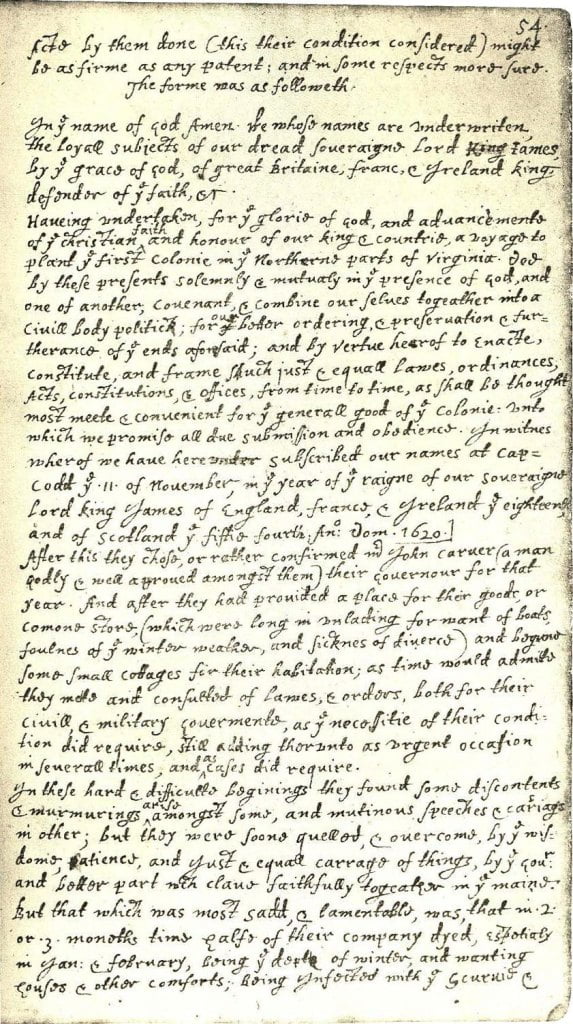 54
Acts by them done (this their condition considered) might
be as firme as any patent; and in some respects more sure.
The forme was as followeth.
In yͤ name of god Amen. We whose names are underwriten,
the loyall subjects of our dread soveraigne Lord King James,
by yͤ grace of god, of great Britaine, franc, & Ireland king,
defender of yͤ faith, &c
Haveing undertaken, for yͤ glorie of god, and advancemente
of yͤ christian faith and honour of our king & countrie, a voyage to
plant yͤ first colonie in yͤ Northerne parts of Virginia. Doe
by these presents solemnly & mutualy in yͤ presence of god, and
one of another, covenant, & combine our selves togeather into a
Civill body politick; for our better ordering, & preservation & fur=
therance of yͤ ends aforesaid; and by vertue hearof to Enacte,
constitute, and frame such just & equall Lawes, ordinances,
Acts, constitutions, & offices, from time to time, as shall be thought
most meete & convenient for yͤ generall good of yͤ Colonie: unto
which we promise all due submission and obedience. In witnes
wherof we have hereunder subscribed our names at Cap=
Codd yͤ .11. of November, in yͤ year of yͤ raigne of our soveraigne
Lord king James of England, france, & Ireland yͤ eighteenth
and of Scotland yͤ fiftie fourth. Anº: Dom. 1620.]
After this they chose, or rather confirmed mʳ John Carver (a man
godly & well approved amongst them) their governour for that
year. And after they had provided a place for their goods, or
comone store, (which were long in unlading for want of boats,
foulnes of yͤ winter weather, and sicknes of diverce) and begune
some small cottages for their habitation; as time would admitte
they mette and consulted of Lawes, & orders, both for their
civill & military govermente, as yͤ necessitie of their condi=
tion did require, still adding therunto as urgent occasion
in severall times, and as cases did require.
In these hard & difficulte beginings they found some discontents
& murmurings arise amongst some, and mutinous speeches & cariags
in other; but they were soone quelled, & overcome, by yͤ wis=
dome patience, and just & equall carrage of things, by yͤ Govʳ:
and better part wch clave faithfully togeather in yͤ maine.
But that which was most sadd, & lamentable, was, that in .2.
or .3. moneths time halfe of their company dyed, espetialy
in Jan: & february, being yͤ depth of winter, and wanting
houses & other comforts; being Infected with yͤ Scurvie &